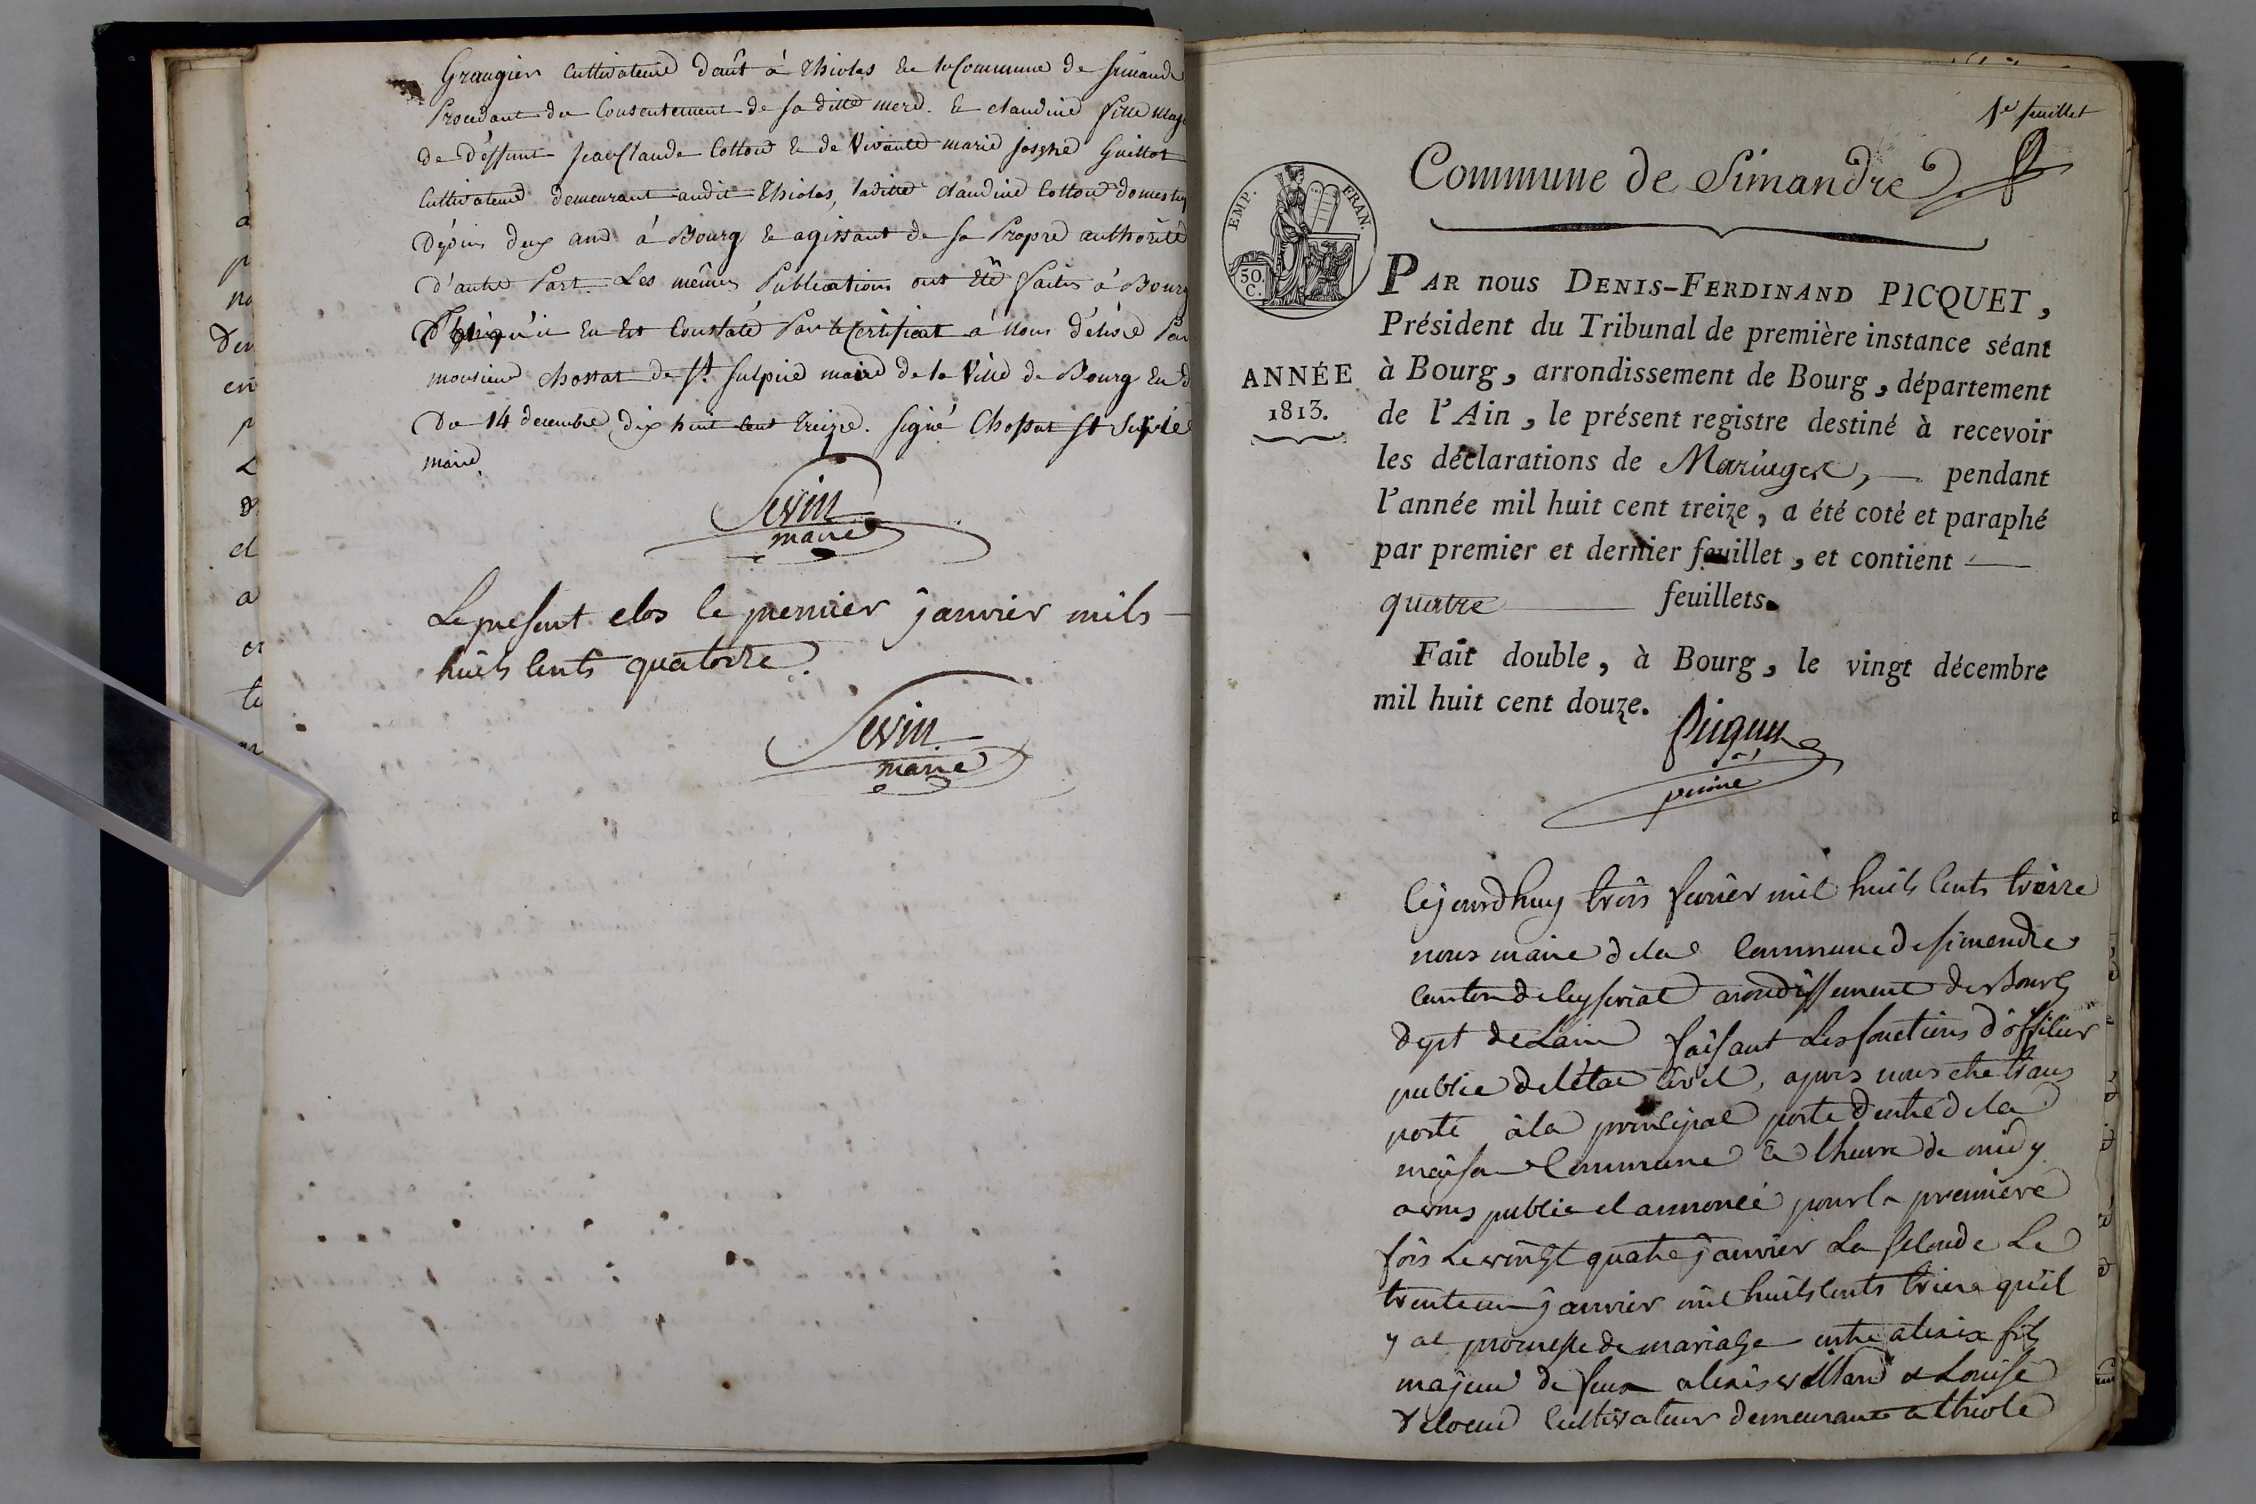 Grangier Cultivateurs dmt á Thioles de la Commune de Simand
Procédant du Consentement de sa ditte mere. & claudine fille maj
de deffunt Jean Claude Cottou & de Vivante marie josephe Guillot
Cultivateurs demeurant audit Thioles, laditte claudine Cottou domestiq
Dépuis deux ans á Bourg & agissant de sa Propre authorité
D'autre Part. Les mêmes Publications ont été faites á Bourg
qu'il En Est Constaté Par le Certificat á nous délivré Par
monsieur chossat de St Sulpice maire de la Ville de Bourg En d
Du 14 decembre dix huit cent treize. Signé Chossat St Sulpice
maire
Sevin
maire
Le present clos le premier janvier mils
huits cents quatorze.
Sevin
maire
1e feuillet
Commune de Simandre
EMP. FRAN.
50 C.
ANNÉE
1813.
PAR nous DENIS-FERDINAND PICQUET,
Président du Tribunal de première instance séant
à Bourg, arrondissement de Bourg, département
de l'Ain, le présent registre destiné à recevoir
les déclarations de Mariages, pendant
l'année mil huit cent treize, a été coté et paraphé
par premier et dernier feuillet, et contient
quatre feuillets.
Fait double, à Bourg, le vingt décembre
mil huit cent douze.
Picquet
Cejourdhuy trois fevrier mil huits cents treize
nous maire de la Commune de simendre
Canton de Ceyseriat arondissement de Bourg
dept de Lain faisant Les fonctions d'officier
public de l'état civil, apres nous etre trans
porté à la principal porte dentré de la
maison Commune à lheure de midy
avons publié et annoncé pour la premiere
fois Le vingt quatre janvier La seconde Le
trente un janvier mil huits cents trieze qu'il
y at promesse de mariage entre alexis fils
majeur de feux alexis villard & Louise
veloeud Cultivateur demeurant a thiole